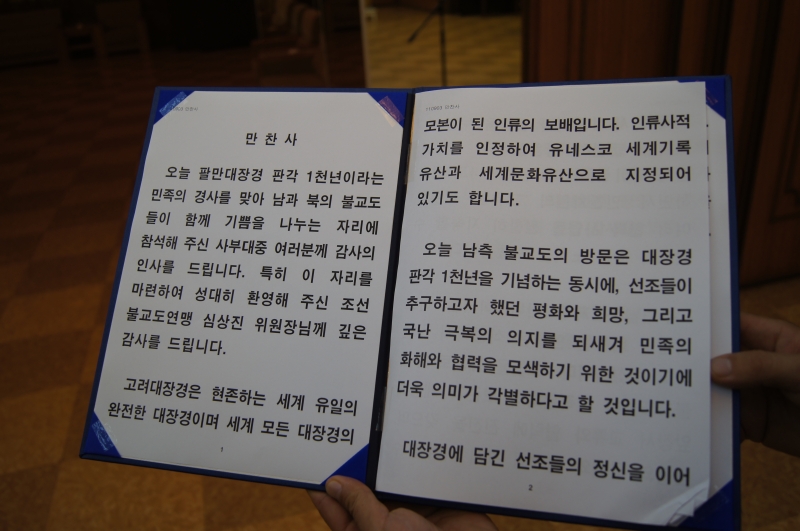 만 찬 사
오늘 팔만대장경 판각 1천년이라는
민족의 경사를 맞아 남과 북의 불교도
들이 함께 기쁨을 나누는 자리에
참석해 주신 사부대중 여러분께 감사의
인사를 드립니다. 특히 이 자리를
마련하여 성대히 환영해 주신 조선
불교도연맹 심상진 위원장님께 깊은
감사를 드립니다.
고려대장경은 현존하는 세계 유일의
완전한 대장경이며 세계 모든 대장경의
1
모본이 된 인류의 보배입니다. 인류사적
가치를 인정하여 유네스코 세계기록
유산과 세계문화유산으로 지정되어
있기도 합니다.
오늘 남측 불교도의 방문은 대장경
판각 1천년을 기념하는 동시에, 선조들이
추구하고자 했던 평화와 희망, 그리고
국난 극복의 의지를 되새겨 민족의
화해와 협력을 모색하기 위한 것이기에
더욱 의미가 각별하다고 할 것입니다.
대장경에 담긴 선조들의 정신을 이어
2